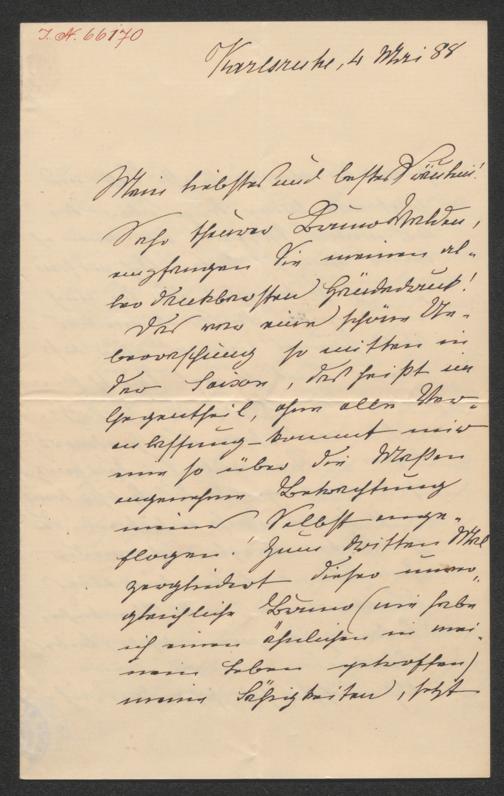 J. N. 66170
Karlsruhe, 4 Mai 88
Mein liebstes und bestes Fräulein!
Sehr theurer Bruno Walden,
empfangen Sie meinen al-
ler dankbarsten Händedruck!
Das war eine schöne Ue-
berraschung so mitten in
der Saison, das heißt im
Gegentheil, ohne alle Ver-
anlassung kommt mir
eine so über die Maßen
angenehme Betrachtung
meines Selbst ange-
flogen! Zum dritten Mal
zergliedert dieser unver-
gleichliche Bruno (nie habe
ich einen ähnlichen in mei-
nem Leben getroffen)
meine Fähigkeiten, setzt